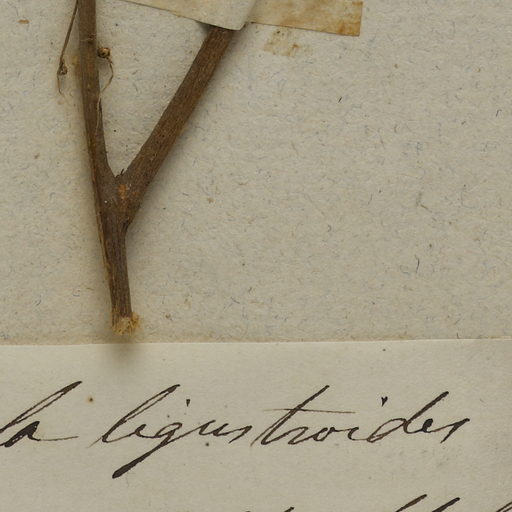 la ligustroides